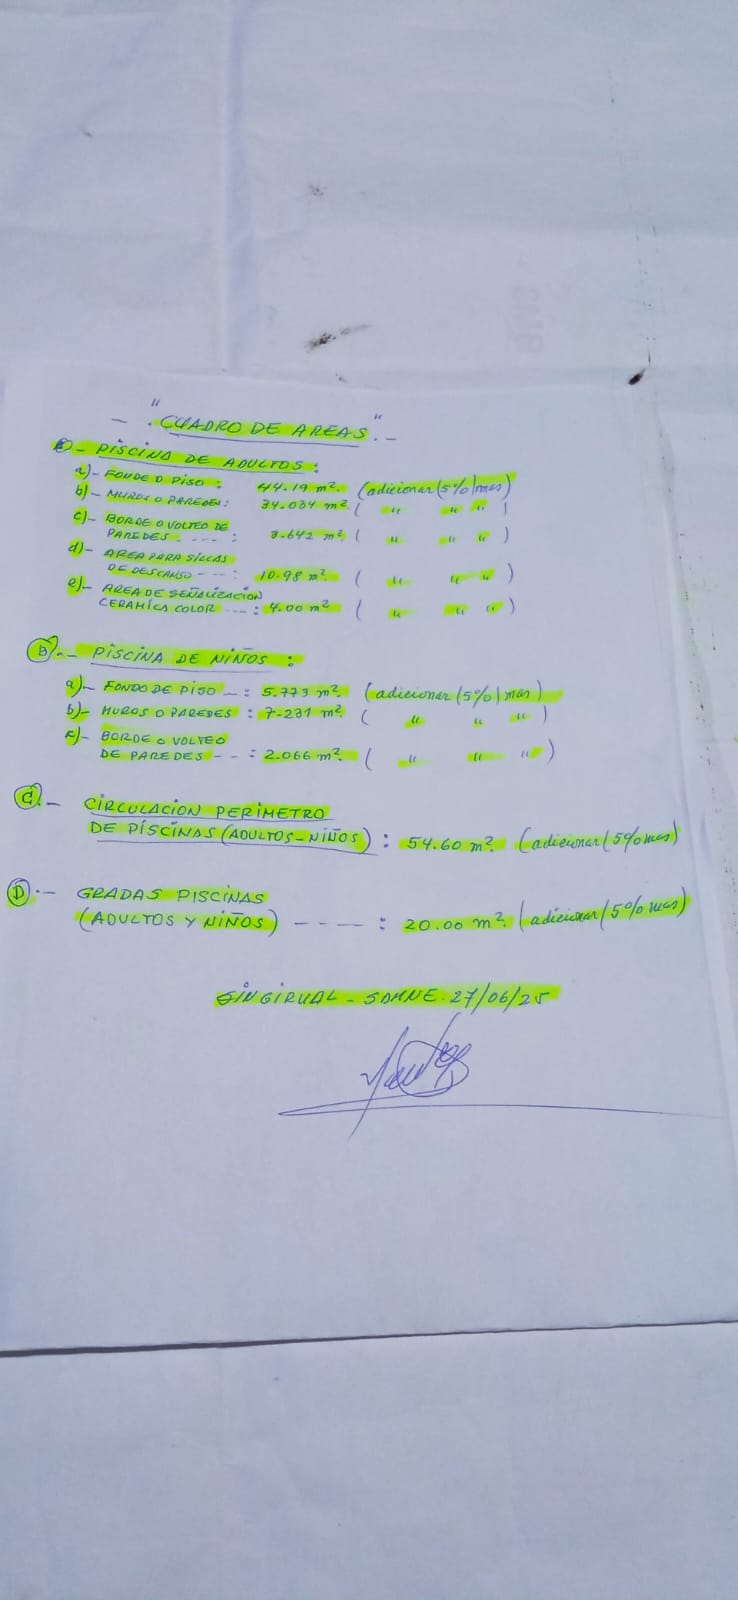 — . "CUADRO DE AREAS". –
- PISCINA DE ADULTOS :
a)- FONDE O PISO : 44.19 m². (adicionar (5%) mas)
b)- MUROS O PAREDES : 34.034 m². ( " " " )
c)- BORDE O VOLTEO DE
PAREDES. - - - - : 3.642 m². ( " " " )
d)- AREA PARA SILLAS
DE DESCANSO - - - : 10.98 m². ( " " " )
e)- AREA DE SEÑALIZACION
CERAMICA COLOR --- : 4.00 m² ( " " " )
B.- PISCINA DE NIÑOS :
a)- FONDO DE PISO — : 5.773 m². (adicionar (5%) mas)
b)- MUROS O PAREDES : 7.231 m². ( " " " )
c)- BORDE O VOLTEO
DE PAREDES - - - : 2.066 m². ( " " " )
C.- CIRCULACION PERIMETRO
DE PISCINAS (ADULTOS-NIÑOS) : 54.60 m². (adicionar (5% mas)
D.- GRADAS PISCINAS
(ADULTOS Y NIÑOS) - - - - : 20.00 m². (adicionar (5% mas)
27/06/25